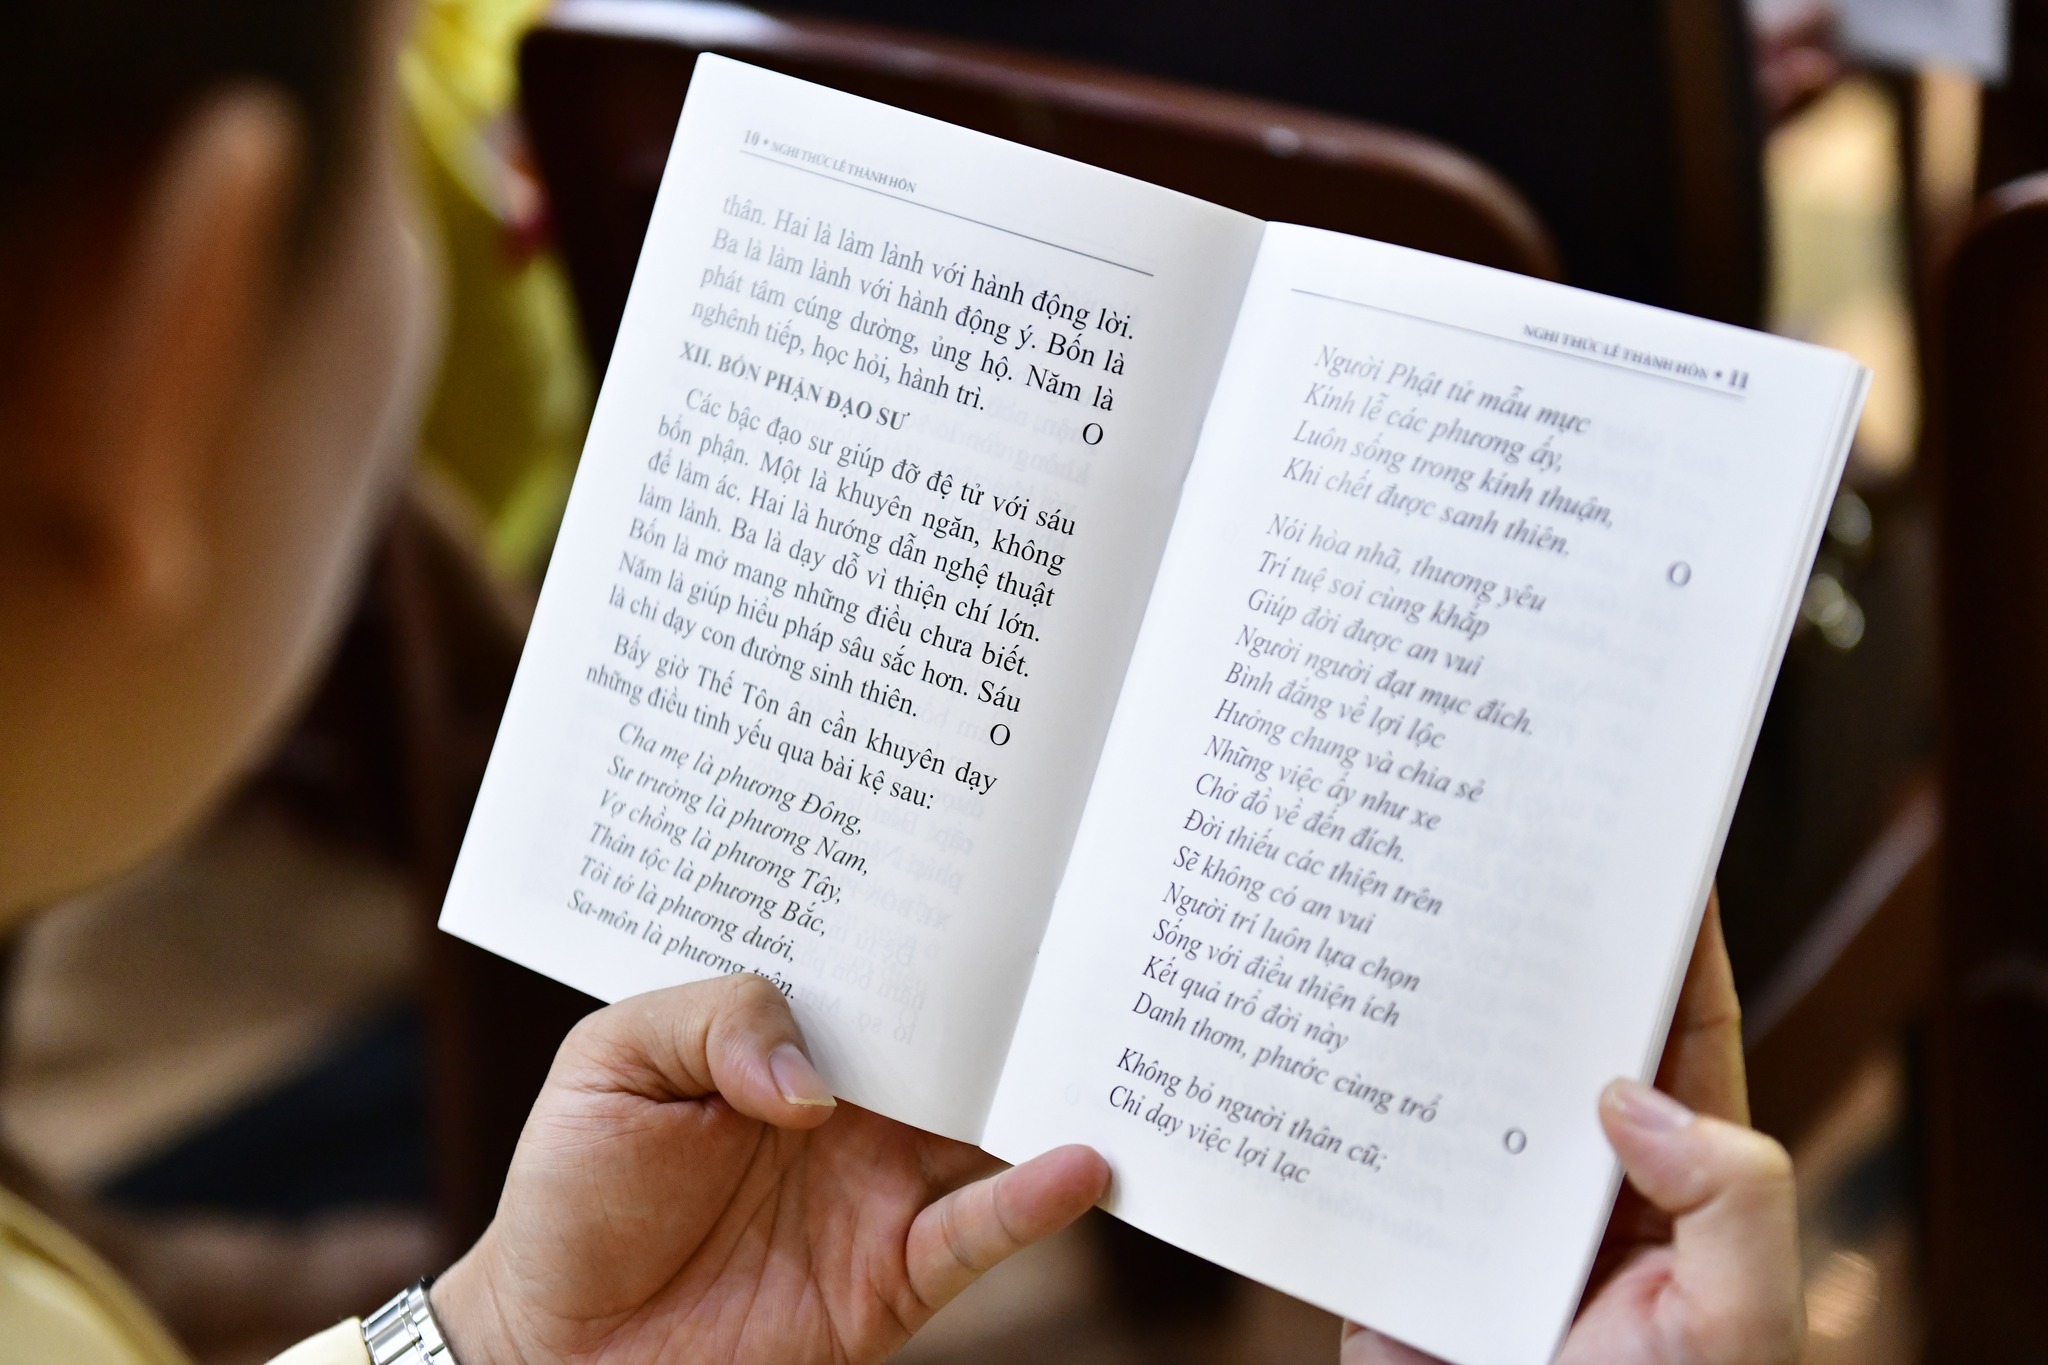 10 * NGHI THỨC LỄ THÀNH HÔN
thân. Hai là làm lành với hành động lời.
Ba là làm lành với hành động ý. Bốn là
phát tâm cúng dường, ủng hộ. Năm là
nghênh tiếp, học hỏi, hành trì.
O
XII. BỔN PHẬN ĐẠO SƯ
Các bậc đạo sư giúp đỡ đệ tử với sáu
bổn phận. Một là khuyên ngăn, không
để làm ác. Hai là hướng dẫn nghệ thuật
làm lành. Ba là dạy dỗ vì thiện chí lớn.
Bốn là mở mang những điều chưa biết.
Năm là giúp hiểu pháp sâu sắc hơn. Sáu
là chỉ dạy con đường sinh thiên.
O
Bấy giờ Thế Tôn ân cần khuyên dạy
những điều tinh yếu qua bài kệ sau:
Cha mẹ là phương Đông,
Sư trưởng là phương Nam,
Vợ chồng là phương Tây,
Thân tộc là phương Bắc,
Tôi tớ là phương dưới,
Sa-môn là phương trên.
NGHI THỨC LỄ THÀNH HÔN * 11
Người Phật tử mẫu mực
Kính lễ các phương ấy,
Luôn sống trong kính thuận,
Khi chết được sanh thiên.
O
Nói hòa nhã, thương yêu
Trí tuệ soi cùng khắp
Giúp đời được an vui
Người người đạt mục đích.
Bình đẳng về lợi lộc
Hưởng chung và chia sẻ
Những việc ấy như xe
Chở đồ về đến đích.
Đời thiếu các thiện trên
Sẽ không có an vui
Người trí luôn lựa chọn
Sống với điều thiện ích
Kết quả trổ đời này
Danh thơm, phước cùng trổ
O
Không bỏ người thân cũ;
Chỉ dạy việc lợi lạc